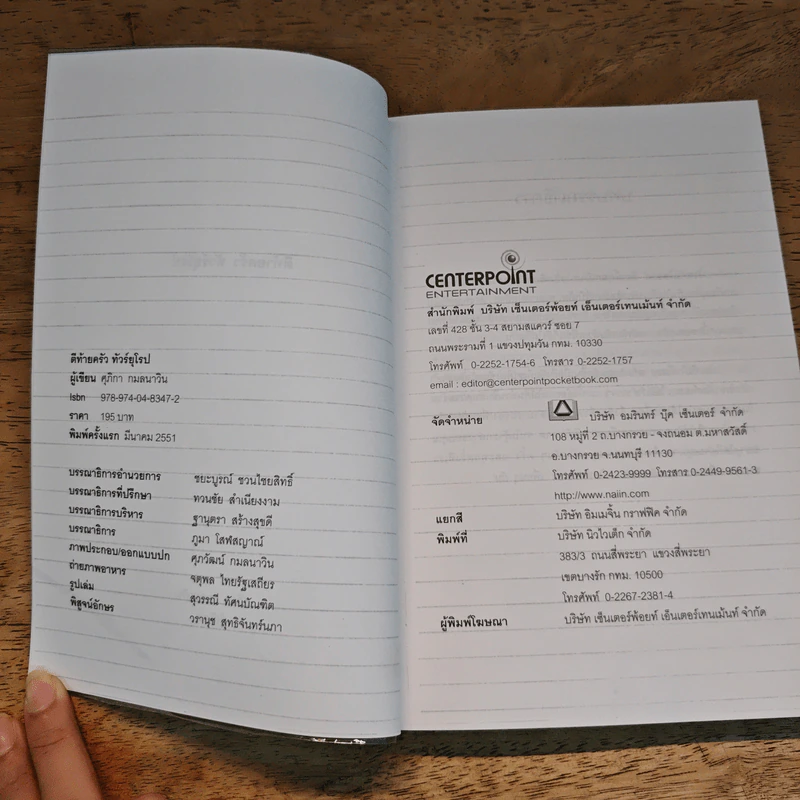 ตีท้ายครัว ทัวร์ยุโรป
ผู้เขียน ศุภิกา กมลนาวิน
Isbn 978-974-04-8347-2
ราคา 195 บาท
พิมพ์ครั้งแรก มีนาคม 2551
บรรณาธิการอำนวยการ ชยะบูรณ์ ชวนไชยสิทธิ์
บรรณาธิการที่ปรึกษา ทวนชัย สำเนียงงาม
บรรณาธิการบริหาร ฐานุตรา สร้างสุขดี
บรรณาธิการ ภูมา โสฬสญาณ์
ภาพประกอบ/ออกแบบปก ศุภวัฒน์ กมลนาวิน
ถ่ายภาพอาหาร จตุพล ไทยรัฐเสถียร
รูปเล่ม สุวรรณี ทัศนบัณฑิต
พิสูจน์อักษร วรานุช สุทธิจันทร์นภา
CENTERPOINT
ENTERTAINMENT
สำนักพิมพ์ บริษัท เซ็นเตอร์พ้อยท์ เอ็นเตอร์เทนเม้นท์ จำกัด
เลขที่ 428 ชั้น 3-4 สยามสแควร์ ซอย 7
ถนนพระรามที่ 1 แขวงปทุมวัน กทม. 10330
โทรศัพท์ 0-2252-1754-6 โทรสาร 0-2252-1757
email : editor@centerpointpocketbook.com
จัดจำหน่าย บริษัท อมรินทร์ บุ๊ค เซ็นเตอร์ จำกัด
108 หมู่ที่ 2 ถ.บางกรวย - จงถนอม ต.มหาสวัสดิ์
อ.บางกรวย จ.นนทบุรี 11130
โทรศัพท์ 0-2423-9999 โทรสาร 0-2449-9561-3
http://www.naiin.com
แยกสี บริษัท อิมเมจิ้น กราฟฟิค จำกัด
พิมพ์ที่ บริษัท นิวไวเต็ก จำกัด
383/3 ถนนสี่พระยา แขวงสี่พระยา
เขตบางรัก กทม. 10500
โทรศัพท์ 0-2267-2381-4
ผู้พิมพ์โฆษณา บริษัท เซ็นเตอร์พ้อยท์ เอ็นเตอร์เทนเม้นท์ จำกัด